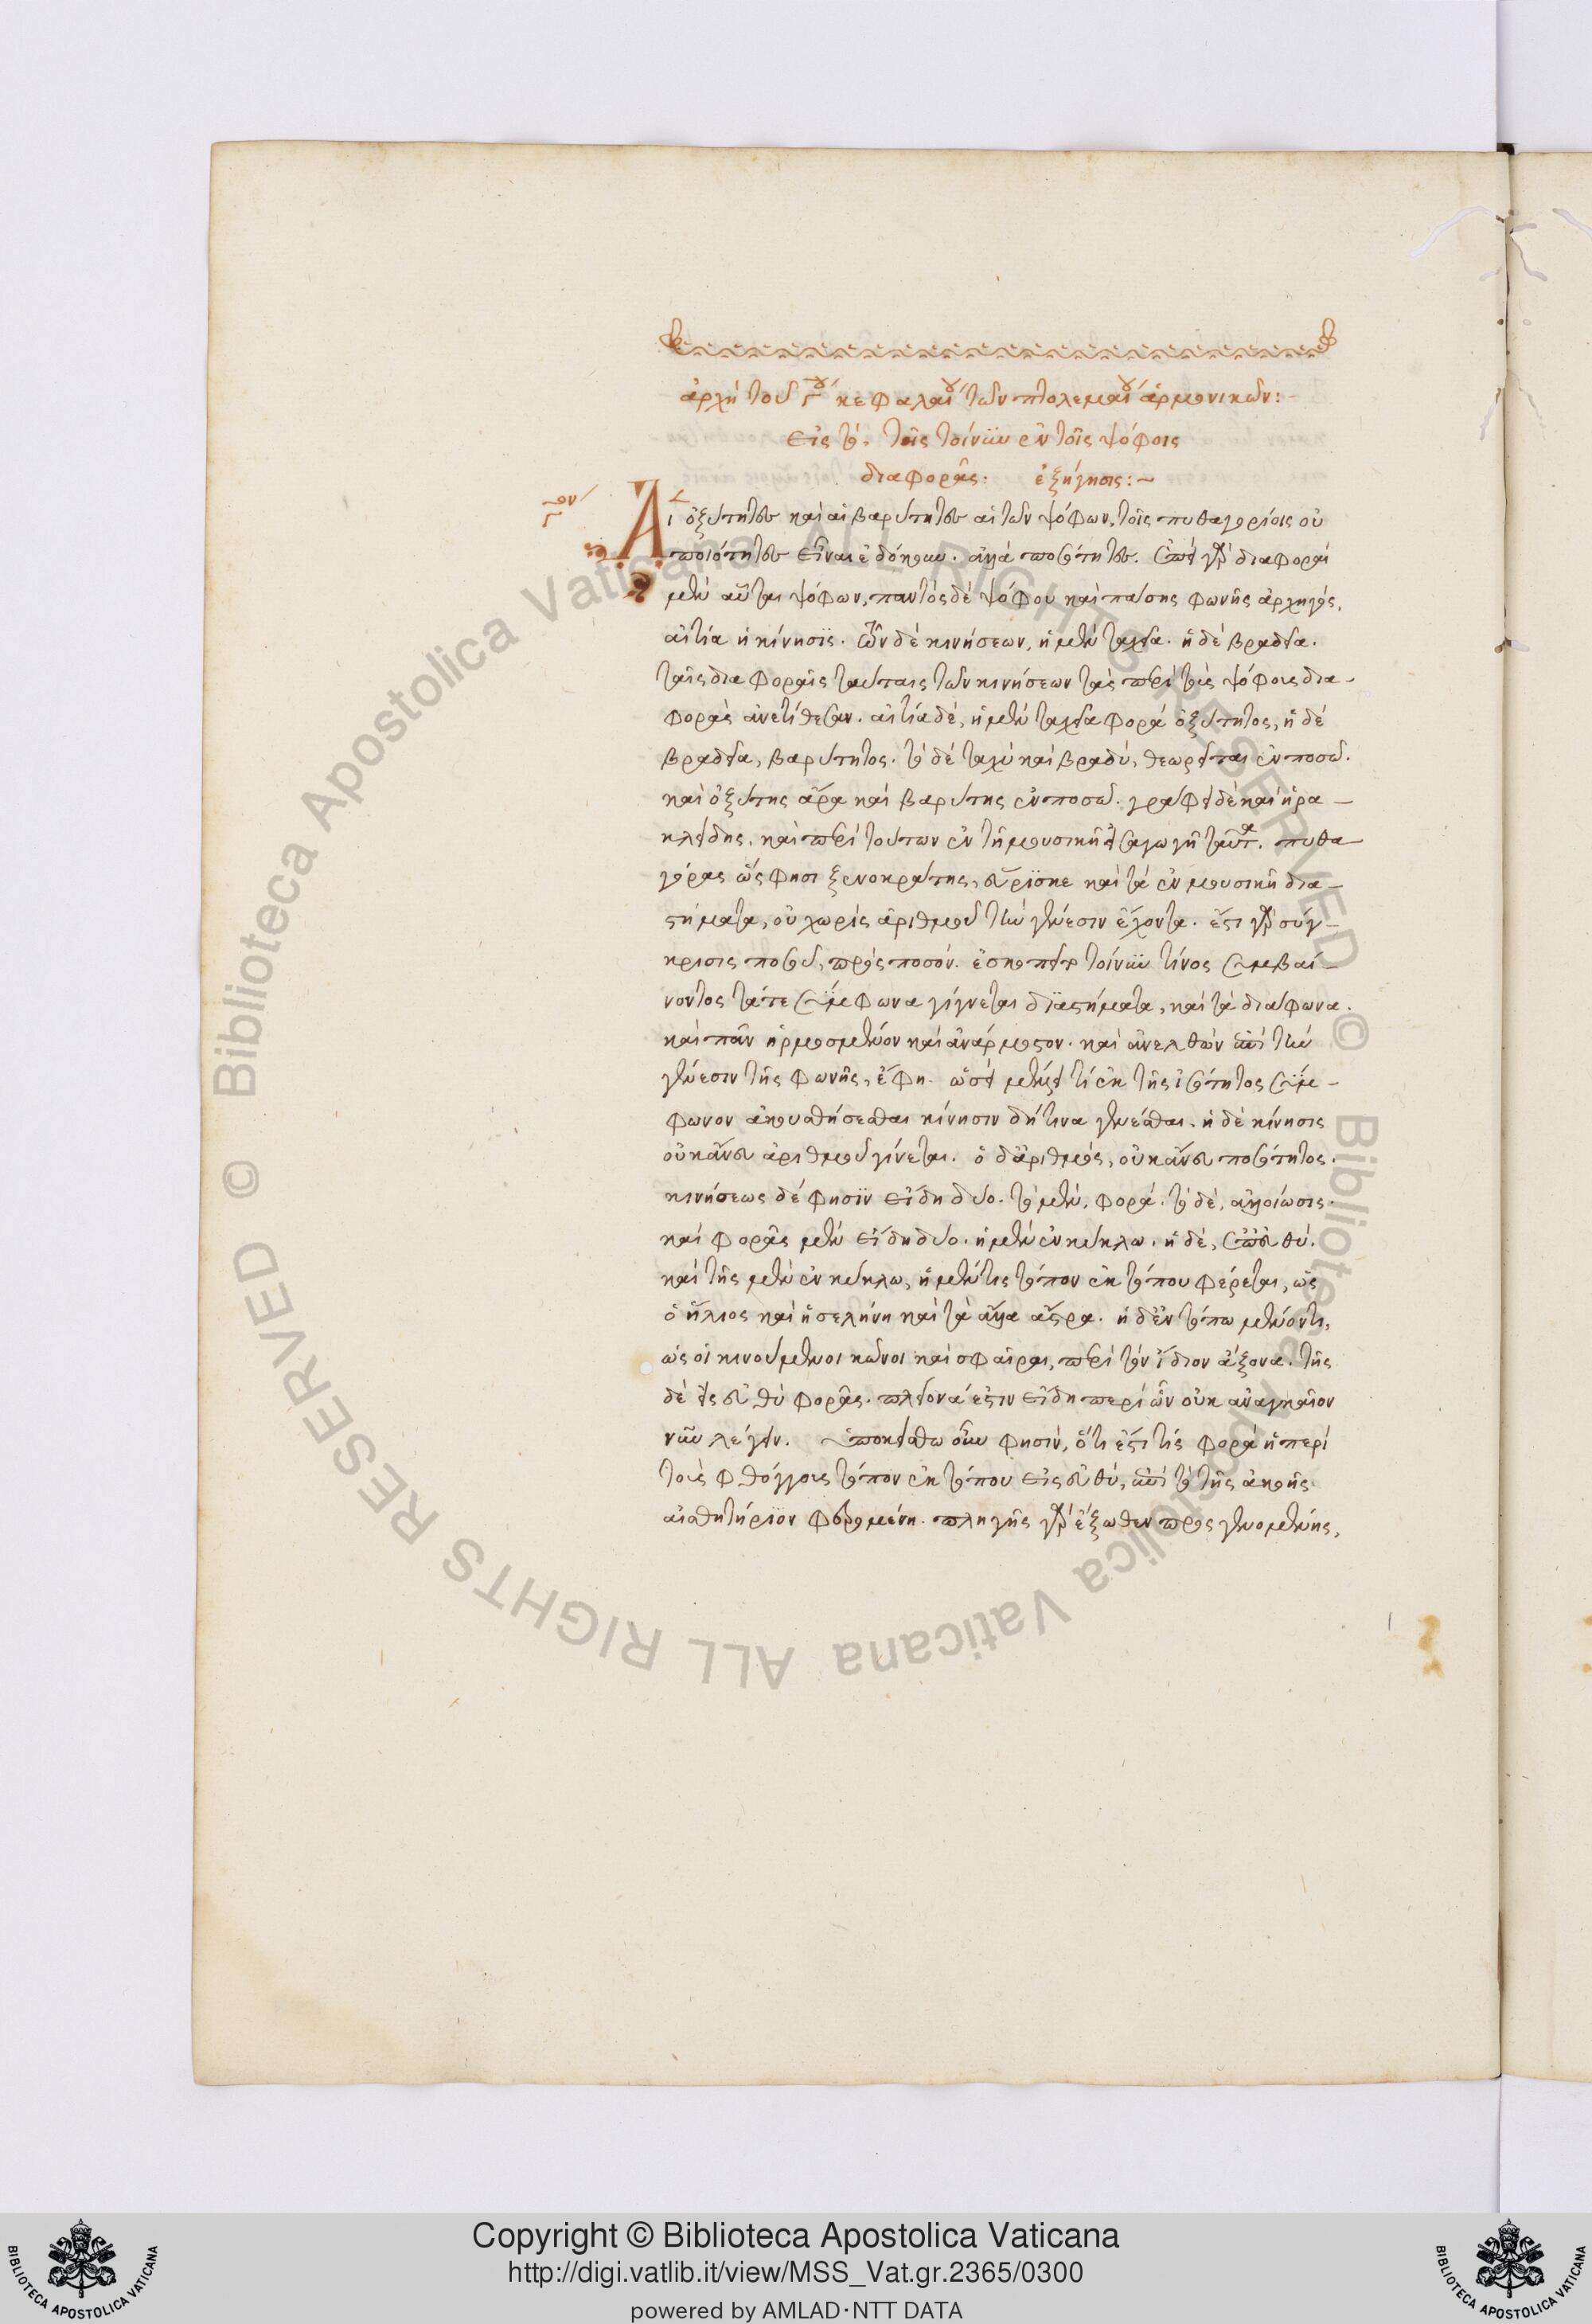 ἀρχὴ τοῦ γ´ου κεφαλαίου τῶν πτολεμαίου ἁρμονικῶν:-
εἰς τὸ. ταῖς τοίνυν ἐν τοῖς ψόφοις
διαφορᾶς: ἐξήγησις:~
γον
Αἱ ὀξύτητες καὶ αἱ βαρύτητες αἱ τῶν ψόφων, τοῖς πυθαγορείοις οὐ
ποιότητες εἶναι ἐδόκουν. ἀλλὰ ποσότητες. ἐπεὶ γὰρ διαφοραὶ
μὲν αὗται ψόφων, παντὸς δὲ ψόφου καὶ πάσης φωνῆς ἀρχηγὸς,
αἰτία ἡ κίνησις. τῶν δὲ κινήσεων, ἡ μὲν ταχεῖα. ἡ δὲ βραδεῖα.
ταῖς διαφοραῖς ταύταις τῶν κινήσεων τὰς περὶ τοὺς ψόφους δια-
φορὰς ἀνετίθεσαν. αἰτία δὲ, ἡ μὲν ταχεῖα φορὰ ὀξύτητος, ἡ δὲ
βραδεῖα, βαρύτητος. τὸ δὲ ταχὺ καὶ βραδὺ, θεωρεῖται ἐν ποσῶ.
καὶ ὀξύτης ἄρα καὶ βαρύτης ἐν ποσῶ. γράφει δὲ καὶ ἡρα-
κλείδης, καὶ περὶ τούτων ἐν τῆ μουσικῆ εἰσαγωγῆ ταῦτα. πυθα-
γόρας ὥς φησι ξενοκράτης, εὕρισκε καὶ τὰ ἐν μουσικῆ δια-
στήματα, οὐ χωρὶς ἀριθμοῦ τὴν γένεσιν ἔχοντα. ἔστι γὰρ σύγ-
κρισις ποσοῦ, πρὸς ποσόν. ἐσκοπεῖτο τοίνυν τίνος συμβαί-
νοντος τά τε σύμφωνα γίγνεται διαστήματα, καὶ τὰ διάφωνα.
καὶ πᾶν ἡρμοσμένον καὶ ἀνάρμοστον. καὶ ἀνελθὼν ἐπὶ τὴν
γένεσιν τῆς φωνῆς, ἔφη. ὡς εἰ μέλλει τί ἐκ τῆς ἰσότητος σύμ-
φωνον ἀκουσθήσεσθαι κίνησιν δεῖ τινα γενέσθαι. ἡ δὲ κίνησις
οὐκ ἄνευ ἀριθμοῦ γίνεται. ὁ δ' ἀριθμὸς, οὐκ ἄνευ ποσότητος.
κινήσεως δέ φησιν εἴδη δύο. τὸ μὲν, φορά. τὸ δὲ, ἀλλοίωσις.
καὶ φορᾶς μὲν εἴδη δύο. ἡ μὲν ἐν κύκλω. ἡ δὲ, ἐπ' εὐθύ.
καὶ τῆς μὲν ἐν κύκλω, ἡ μέν τις τόπον ἐκ τόπου φέρεται, ὡς
ὁ ἥλιος καὶ ἡ σελήνη καὶ τὰ ἄλλα ἄστρα. ἡ δ' ἐν τόπω μένοντι,
ὡς οἱ κινούμενοι κῶνοι καὶ σφαῖραι, περὶ τὸν ἴδιον ἄξονα. τῆς
δὲ εἰς εὐθὺ φορᾶς. πλείονά ἐστιν εἴδη περὶ ὧν οὐκ ἀναγκαῖον
νῦν λέγειν. ὑποκείσθω οὖν φησὶν, ὅτι ἔστι τίς φορὰ ἡ περὶ
τοὺς φθόγγους τόπον ἐκ τόπου εἰς εὐθὺ, ἐπὶ τὸ τῆς ἀκοῆς
αἰσθητήριον φερομένη. πληγῆς γὰρ ἔξωθεν προσγενομένης,